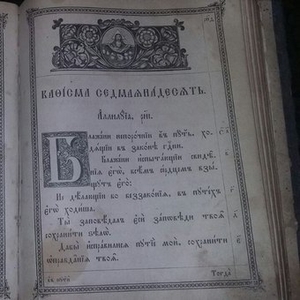 Каѳі́сма седмаѧна́десѧть.
Аллилꙋ́їа, рн҃і
Блаже́ни непоро́чнїи въ пꙋ́ть, хо-
дѧ́щїи въ зако́нѣ гд҇ни.
Блаже́ни испыта́ющїи свидѣ́-
нїѧ є҆гѡ̀, всѣ́мъ се́рдцемъ взы́-
щꙋтъ є҆го̀:
Не дѣ́лающїи бо беззако́нїѧ, въ пꙋте́хъ
є҆гѡ̀ ходи́ша.
Ты̀ заповѣ́далъ є҆сѝ за́повѣди твоѧ̑
сохрани́ти ѕѣлѡ̀.
Дабы̀ и҆спра́вилисѧ пꙋтїѐ мо́й, сохрани́ти
ѡ҆правда̑нїѧ твоѧ̑.
Тогда̀